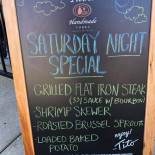 Handmade
SATURDAY NIGHT
SPECIAL
GRILLED FLAT IRON STEAK
SAUCE W/ BOURBON)
SHRIMP SKEWER
-ROASTED BRUSSEL SPROUTS
-LOADED BAKED
POTATO
enjoy!
Tito